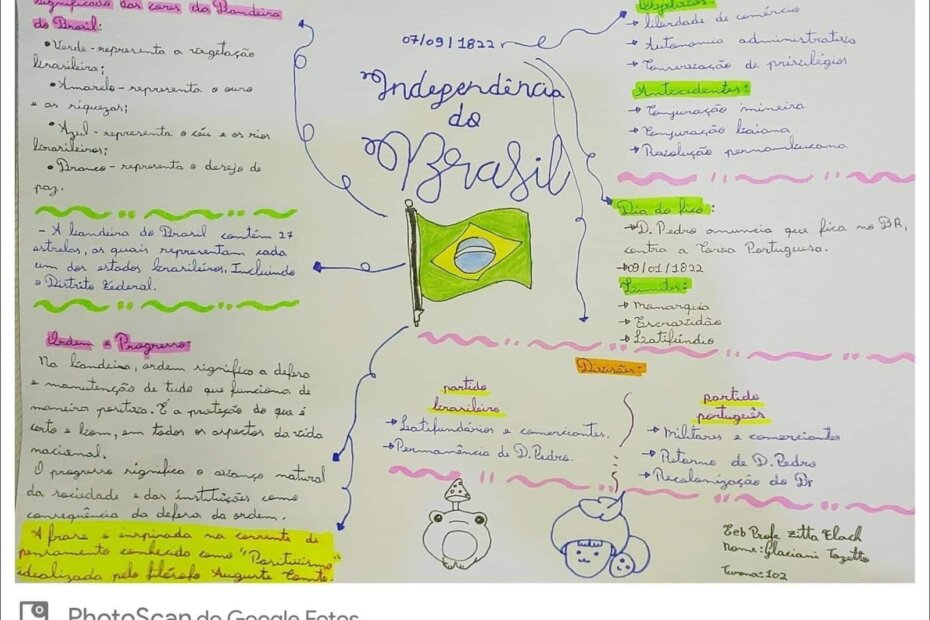 Significado das cores da Bandeira
do Brasil:
• Verde - representa a vegetação
brasileira;
• Amarelo - representa o ouro
e as riquezas;
• Azul - representa o céu e os rios
brasileiros;
• Branco - representa o desejo de
paz.
- A bandeira do Brasil contém 27
estrelas, as quais representam cada
um dos estados brasileiros. Incluindo
o Distrito Federal.
Ordem e Progresso:
Na bandeira, ordem significa a defesa
e manutenção de tudo que funciona de
maneira positiva. É a proteção do que é
certo e bom, em todos os aspectos da vida
nacional.
O progresso significa o avanço natural
da sociedade e das instituições como
consequência da defesa da ordem.
A frase é inspirada na corrente de
pensamento conhecido como "Positivismo"
idealizada pelo filósofo Auguste Comte.
07/09/1822
Independência
do
Brasil
Objetivos:
→ liberdade de comércio
→ Autonomia administrativa
→ Conservação de privilégios
Antecedentes:
→ Conjuração mineira
→ Conjuração baiana
→ Revolução pernambucana
Dia do fico:
→ D. Pedro anuncia que fica no BR,
contra a Coroa Portuguesa.
→ 09/01/1822
Limites:
→ Monarquia
→ Escravidão
→ Latifúndio
Divisões:
partido
brasileiro
→ Latifundiários e comerciantes.
→ Permanência de D. Pedro.
partido
português
→ Militares e comerciantes
→ Retorno de D. Pedro
→ Recolonização do Br
Eeb Profe Zitta Flach
Nome: Glaciani Tozetto
Turma: 102
PhotoScan do Google Fotos